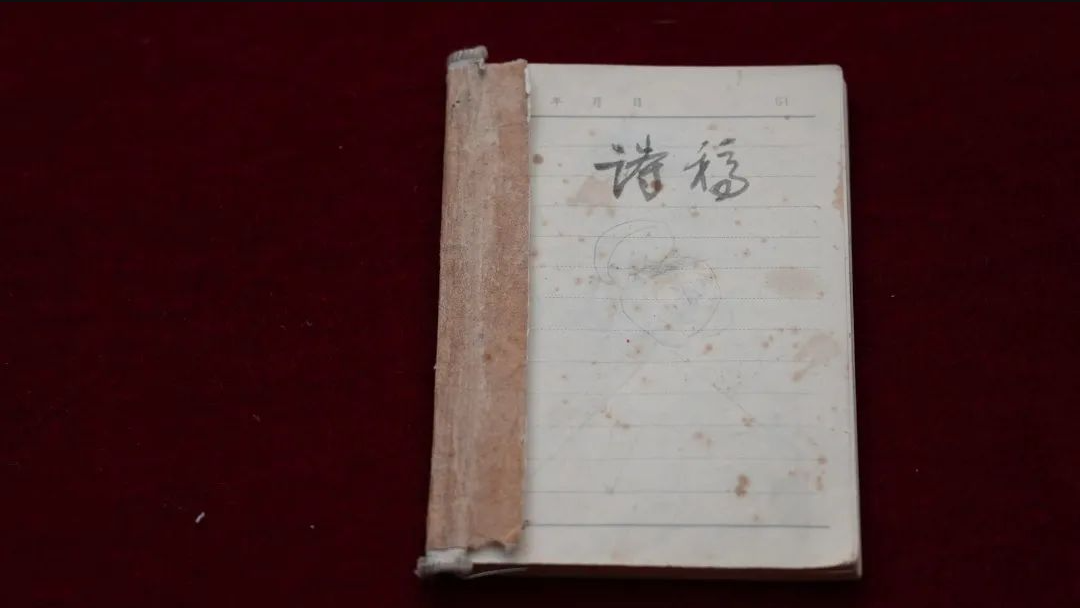 年 月 日 61
诗稿